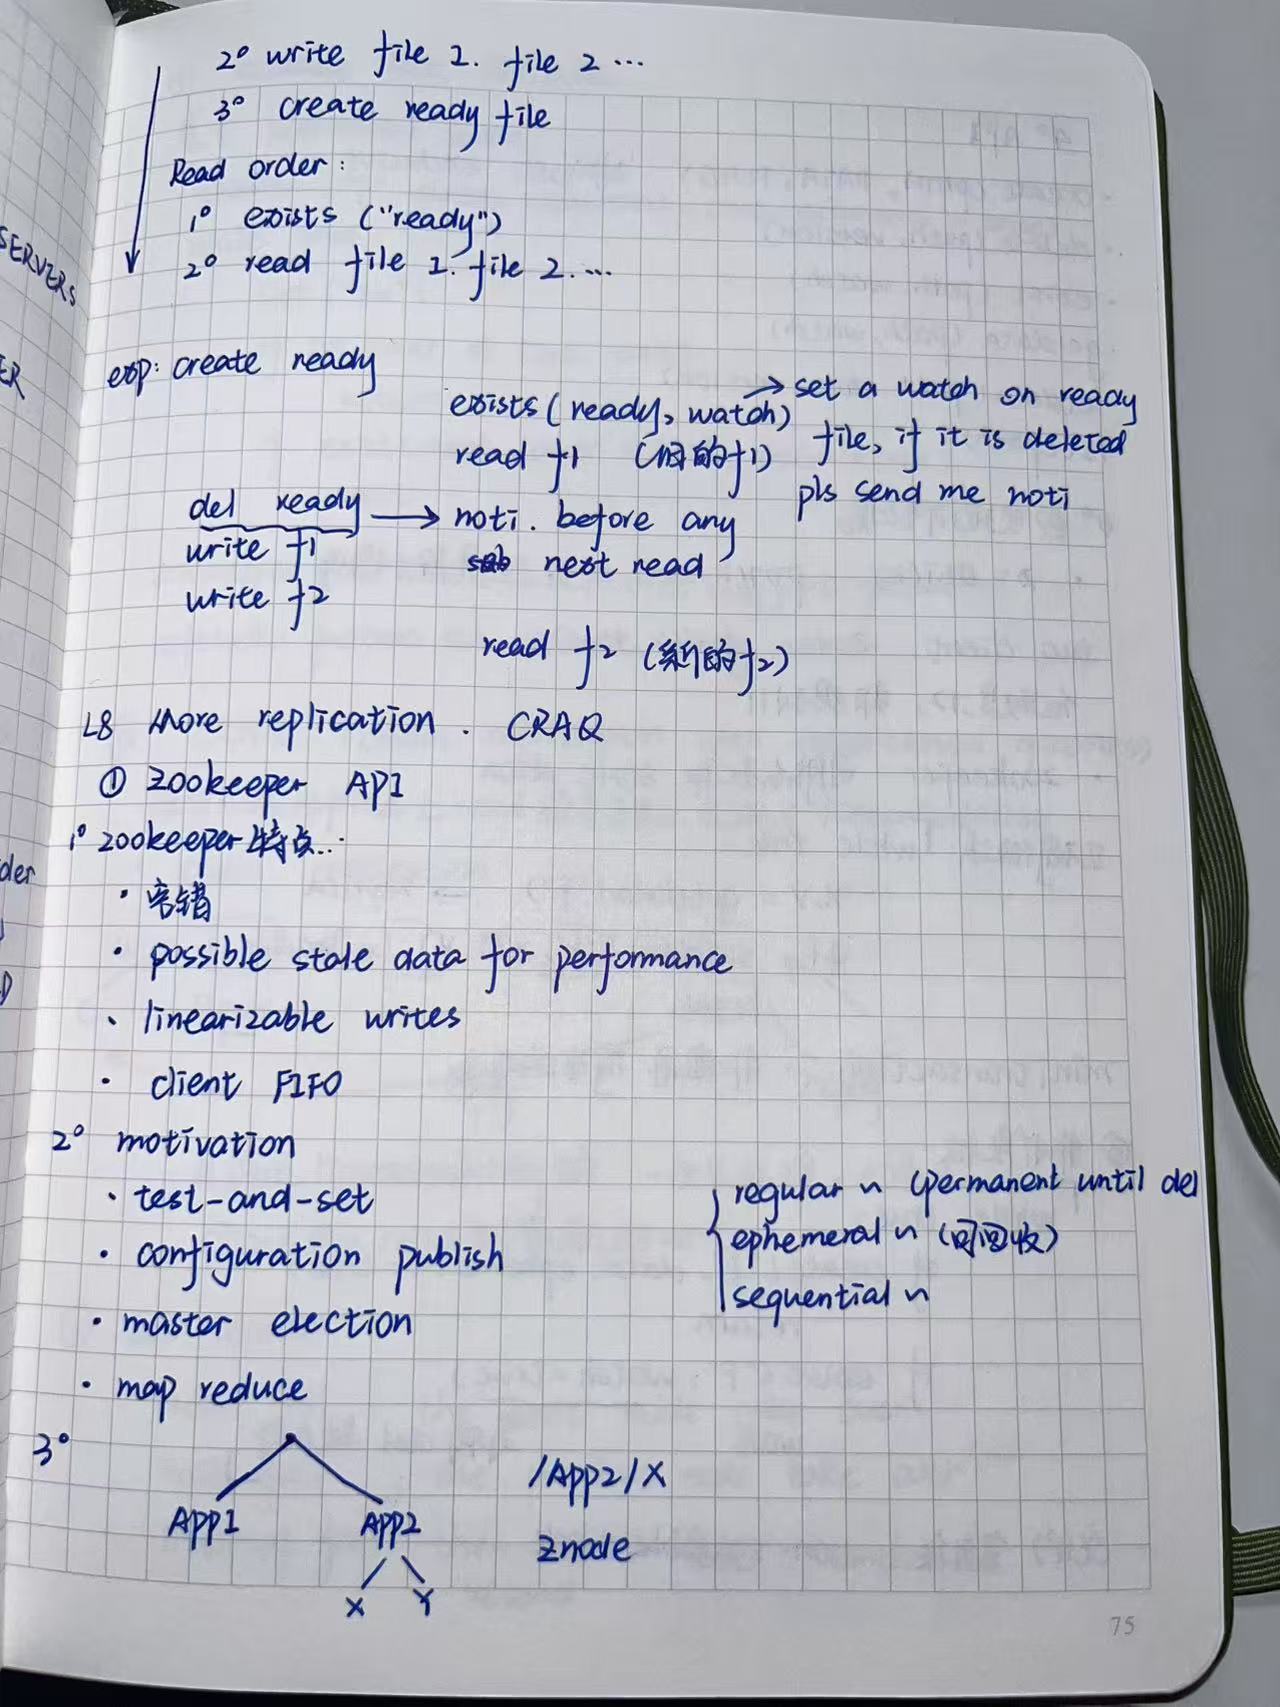 2° write file 1. file 2 ...
3° create ready file
Read order:
1° exists ("ready")
2° read file 1. file 2. ...
SERVERS
ER
exp: create ready
exists (ready, watch) → set a watch on ready
read f1 (旧的f1) file, if it is deleted
pls send me noti
del ready → noti. before any
write f1 next read
write f2
read f2 (新的f2)
L8 More replication. CRAQ
① zookeeper API
1° zookeeper特点...
der
· 容错
· possible stale data for performance
· linearizable writes
· client FIFO
2° motivation
· test-and-set
· configuration publish
· master election
· map reduce
regular n (permanent until del
ephemeral n (可回收)
sequential n
3°
APP1 APP2
X Y
/App2/X
znode
75